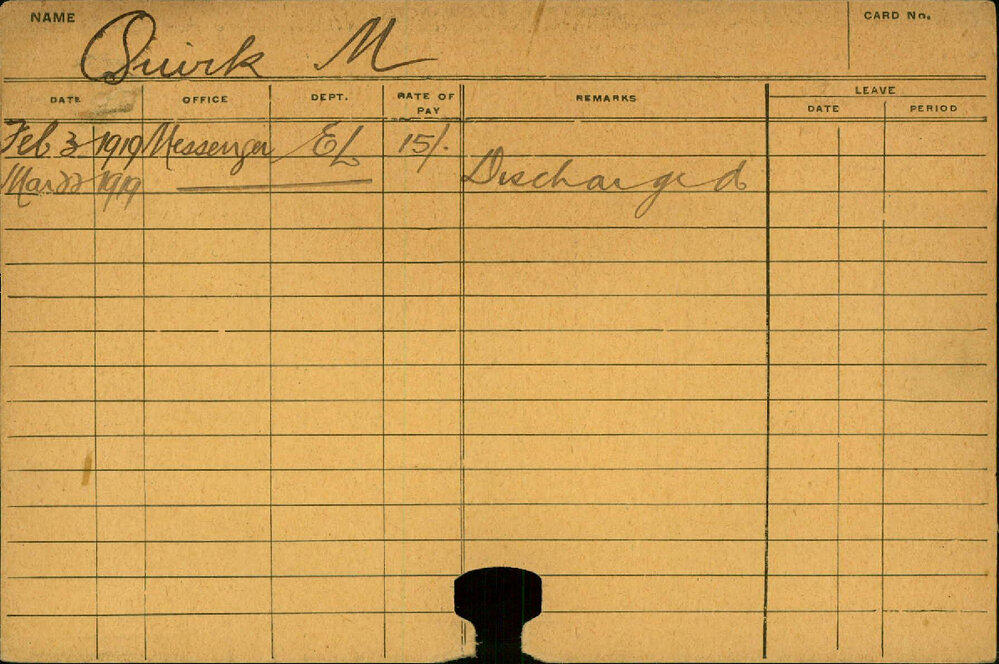 NAME
CARD No.
Quirk M
DATE OFFICE DEPT. RATE OF PAY REMARKS LEAVE
DATE PERIOD
Feb 3 1919 Messenger EL 15/.
Mar 22 1919 Discharged